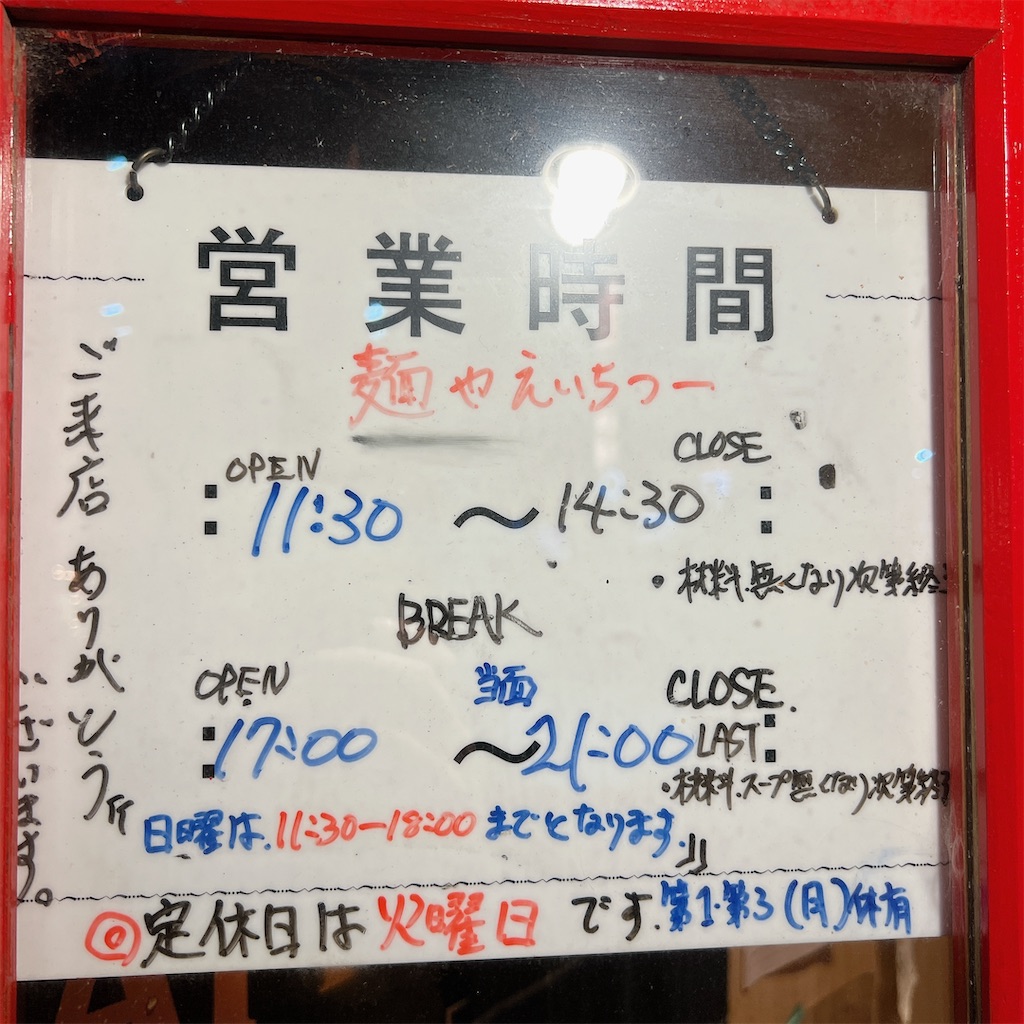 営業時間
麺やえいちつー
OPEN
CLOSE
11:30 〜 14:30
・材料.無くなり次第終
BREAK
OPEN
当面
CLOSE.
17:00 〜 21:00 LAST
・材料.スープ無くなり次第終了
日曜は.11:30ー18:00までとなります.
◎定休日は火曜日です.第1・第3(月)休有
ご来店 ありがとう
ざいます。